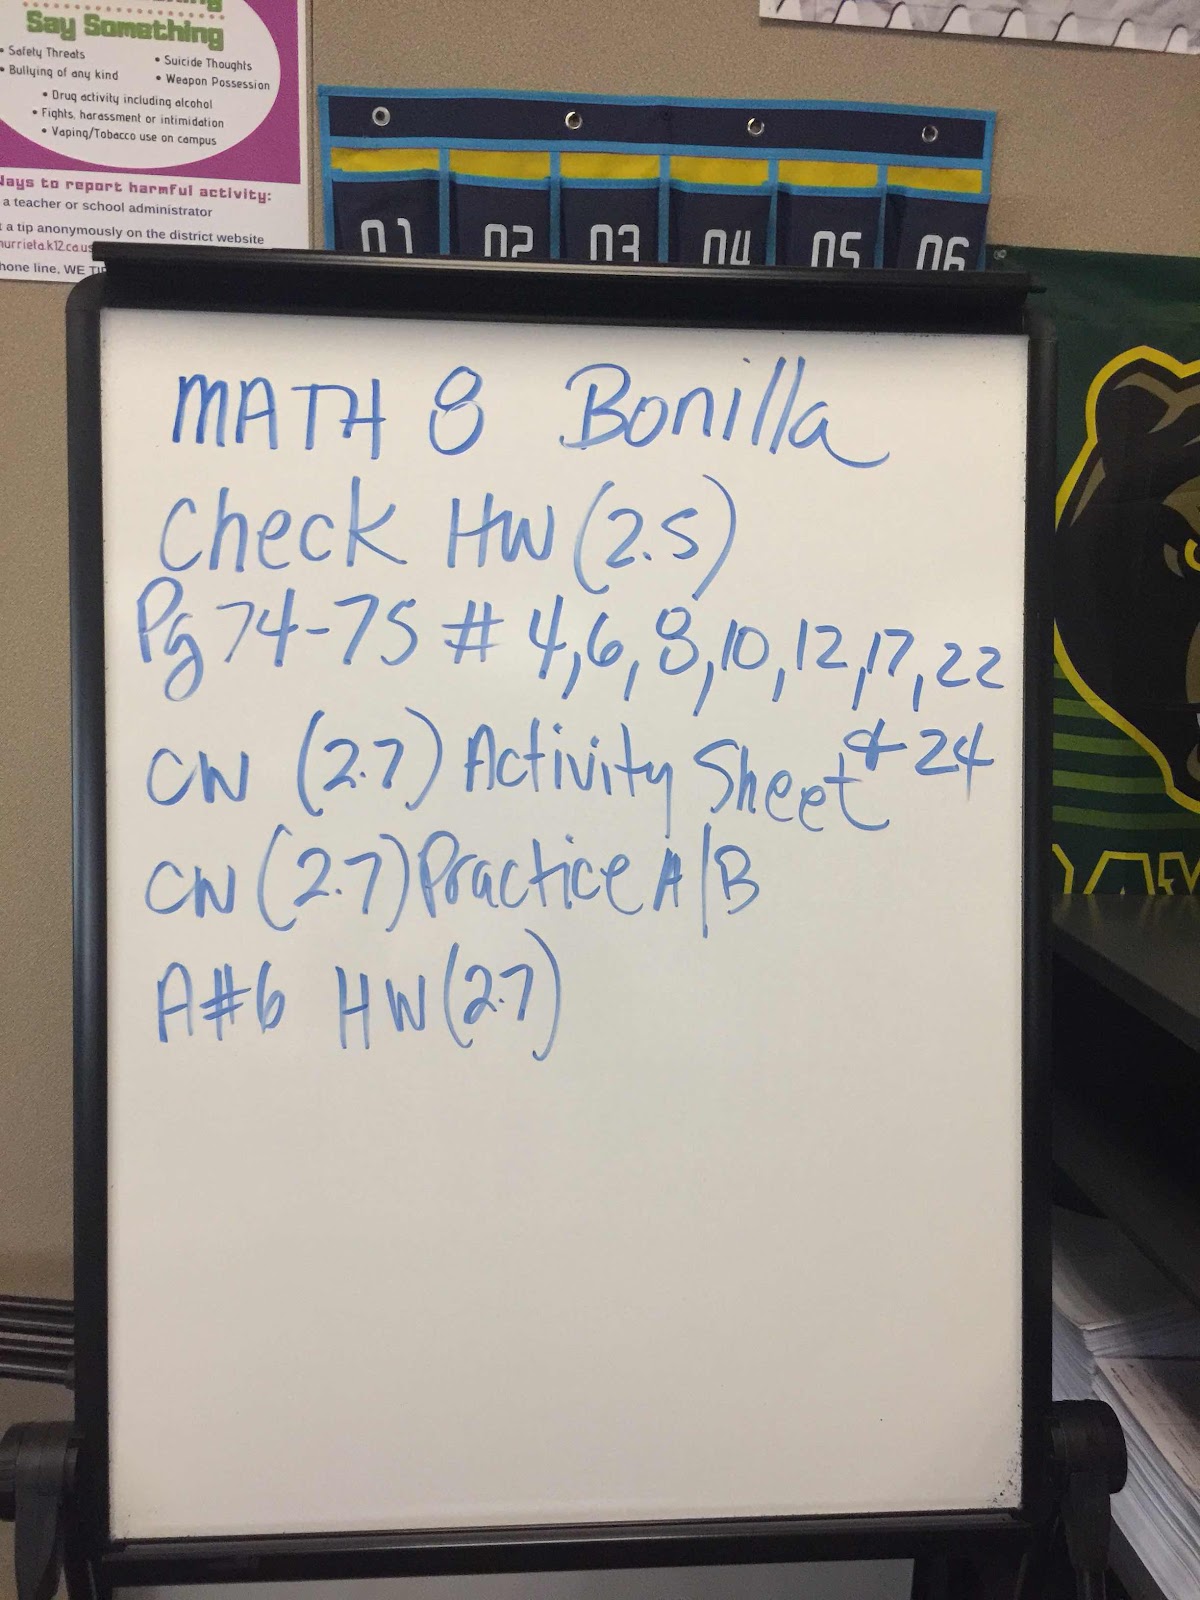 Say Something
• Safety Threats
• Bullying of any kind
• Suicide Thoughts
• Weapon Possession
• Drug activity including alcohol
• Fights, harassment or intimidation
• Vaping/Tobacco use on campus
to report harmful activity:
a teacher or school administrator
a tip anonymously on the district website
line, WE
01 02 03 04 05 06
MATH 8 Bonilla
Check HW (2.5)
Pg 74-75 # 4,6,8,10,12,17,22
& 24
CW (2.7) Activity Sheet
CW (2.7) Practice A/B
A#6 HW (2.7)